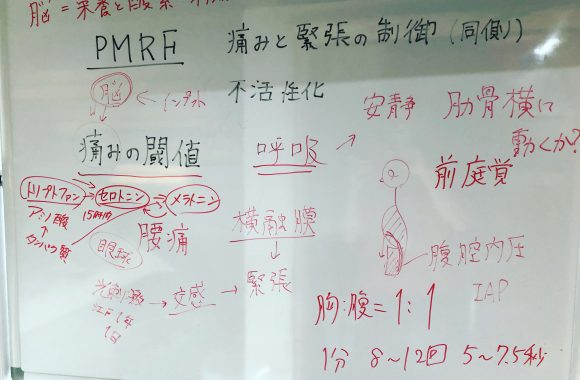 脳 = 栄養と酸素
PMRF 痛みと緊張の制御 (同側)
脳 ← インプット 不活性化
安静 肋骨横に
動くか?
痛みの閾値 呼吸 → 前庭覚
トリプトファン → セロトニン → メラトニン
アミノ酸 15時間
↑
タンパク質
腰痛 横隔膜
眼球 ↓
光刺激 → 交感 → 緊張
1日
腹腔内圧
IAP
胸:腹 = 1:1
1分 8~12回 5~7.5秒